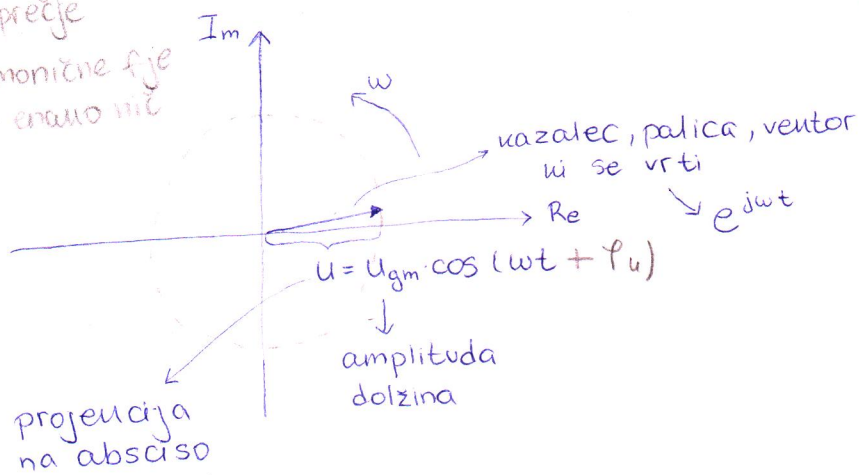 prečje
Im
monične fje
enako nič
ω
kazalec, palica, vektor
ki se vrti
e^{jωt}
Re
u = U_{gm} · cos (ωt + φ_u)
amplituda
dolžina
projekcija
na absciso